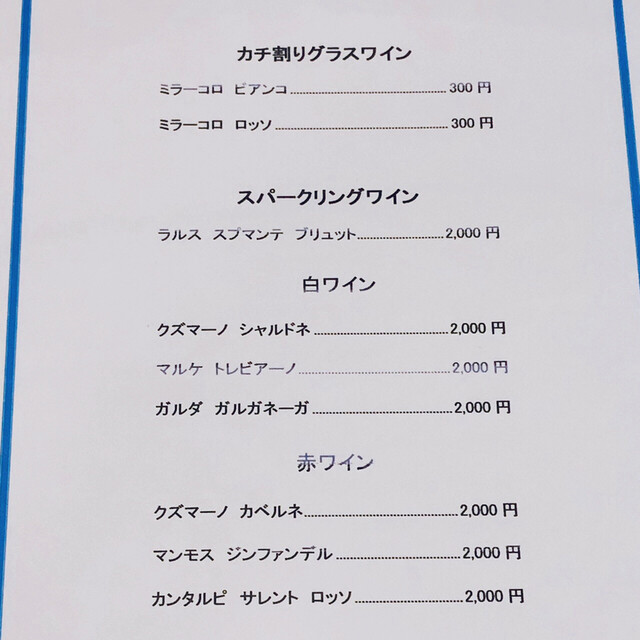 カチ割りグラスワイン
ミラーコロ ビアンコ............................................ 300 円
ミラーコロ ロッソ................................................. 300 円
スパークリングワイン
ラルス スプマンテ ブリュット.........................2,000 円
白ワイン
クズマーノ シャルドネ......................................2,000 円
マルケ トレビアーノ...........................................2,000 円
ガルダ ガルガネーガ........................................2,000 円
赤ワイン
クズマーノ カベルネ...........................................2,000 円
マンモス ジンファンデル...................................2,000 円
カンタルピ サレント ロッソ...............................2,000 円